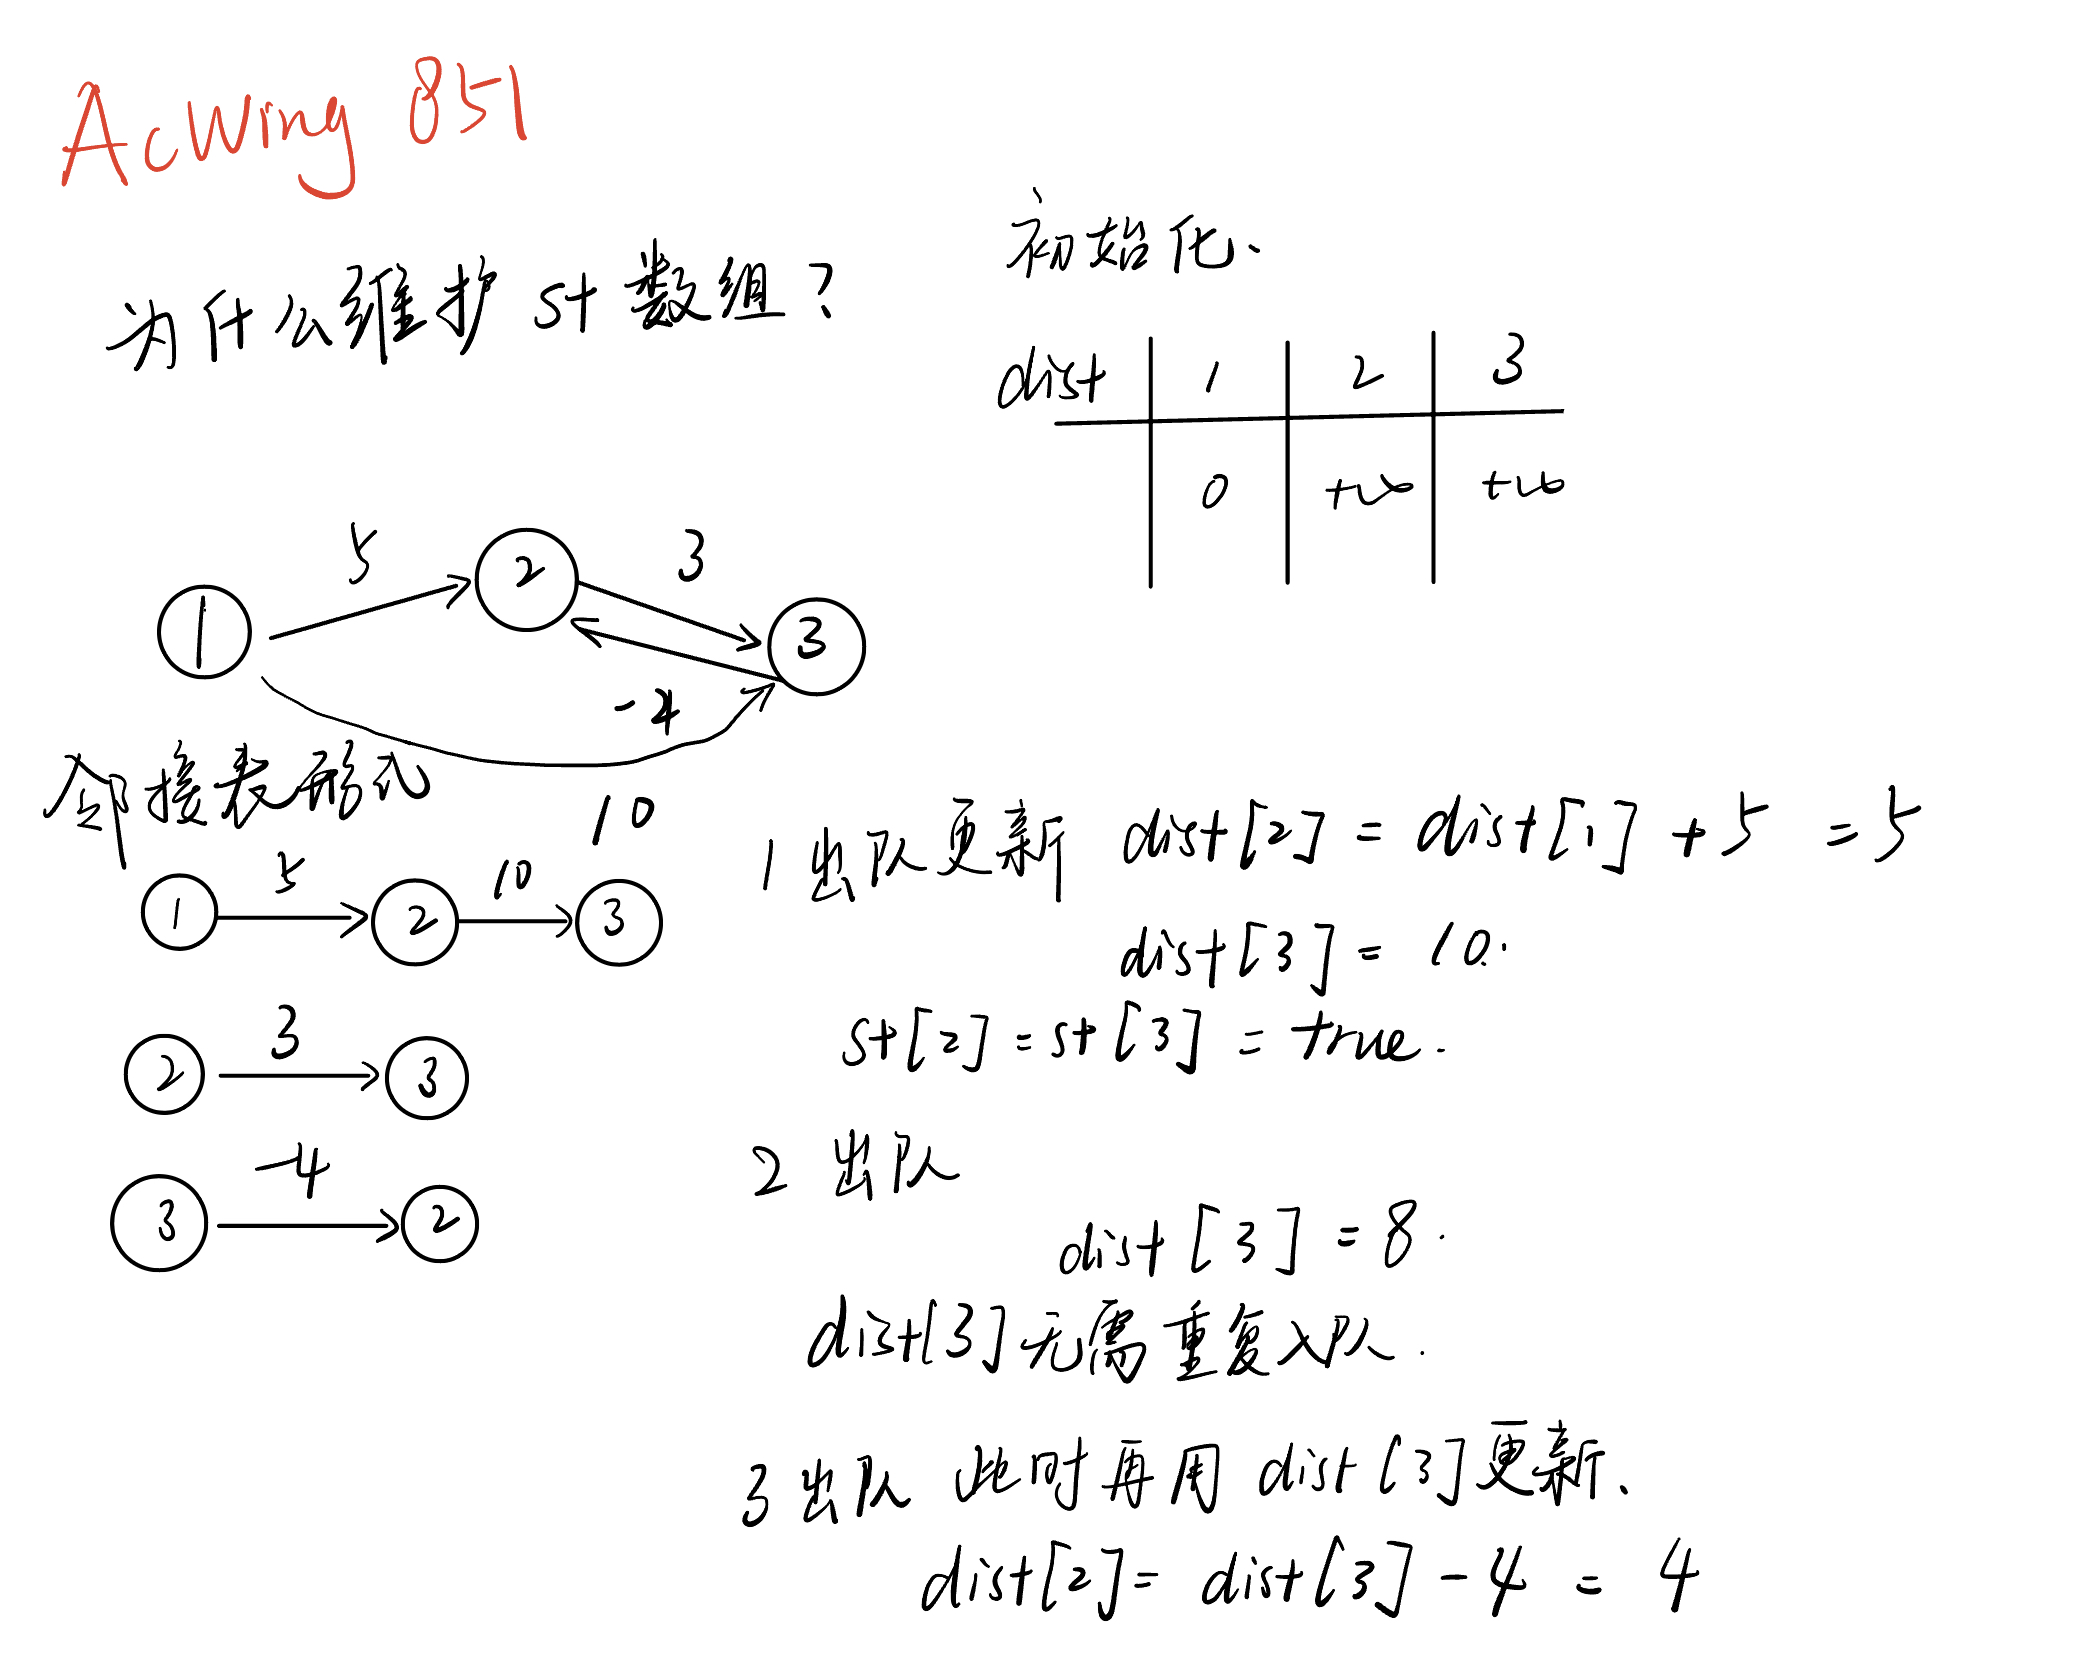 AcWing 851
为什么维护 st 数组?
初始化、
dist 1 2 3
0 +∞ +∞
5
3
1
2
3
-4
10
邻接表形式
1 5 2 10 3
2 3 3
3 -4 2
1 出队更新 dist[2] = dist[1] + 5 = 5
dist[3] = 10.
st[2] = st[3] = true.
2 出队
dist[3] = 8.
dist[3]无需重复入队.
3 出队 此时再用 dist[3]更新、
dist[2] = dist[3] - 4 = 4